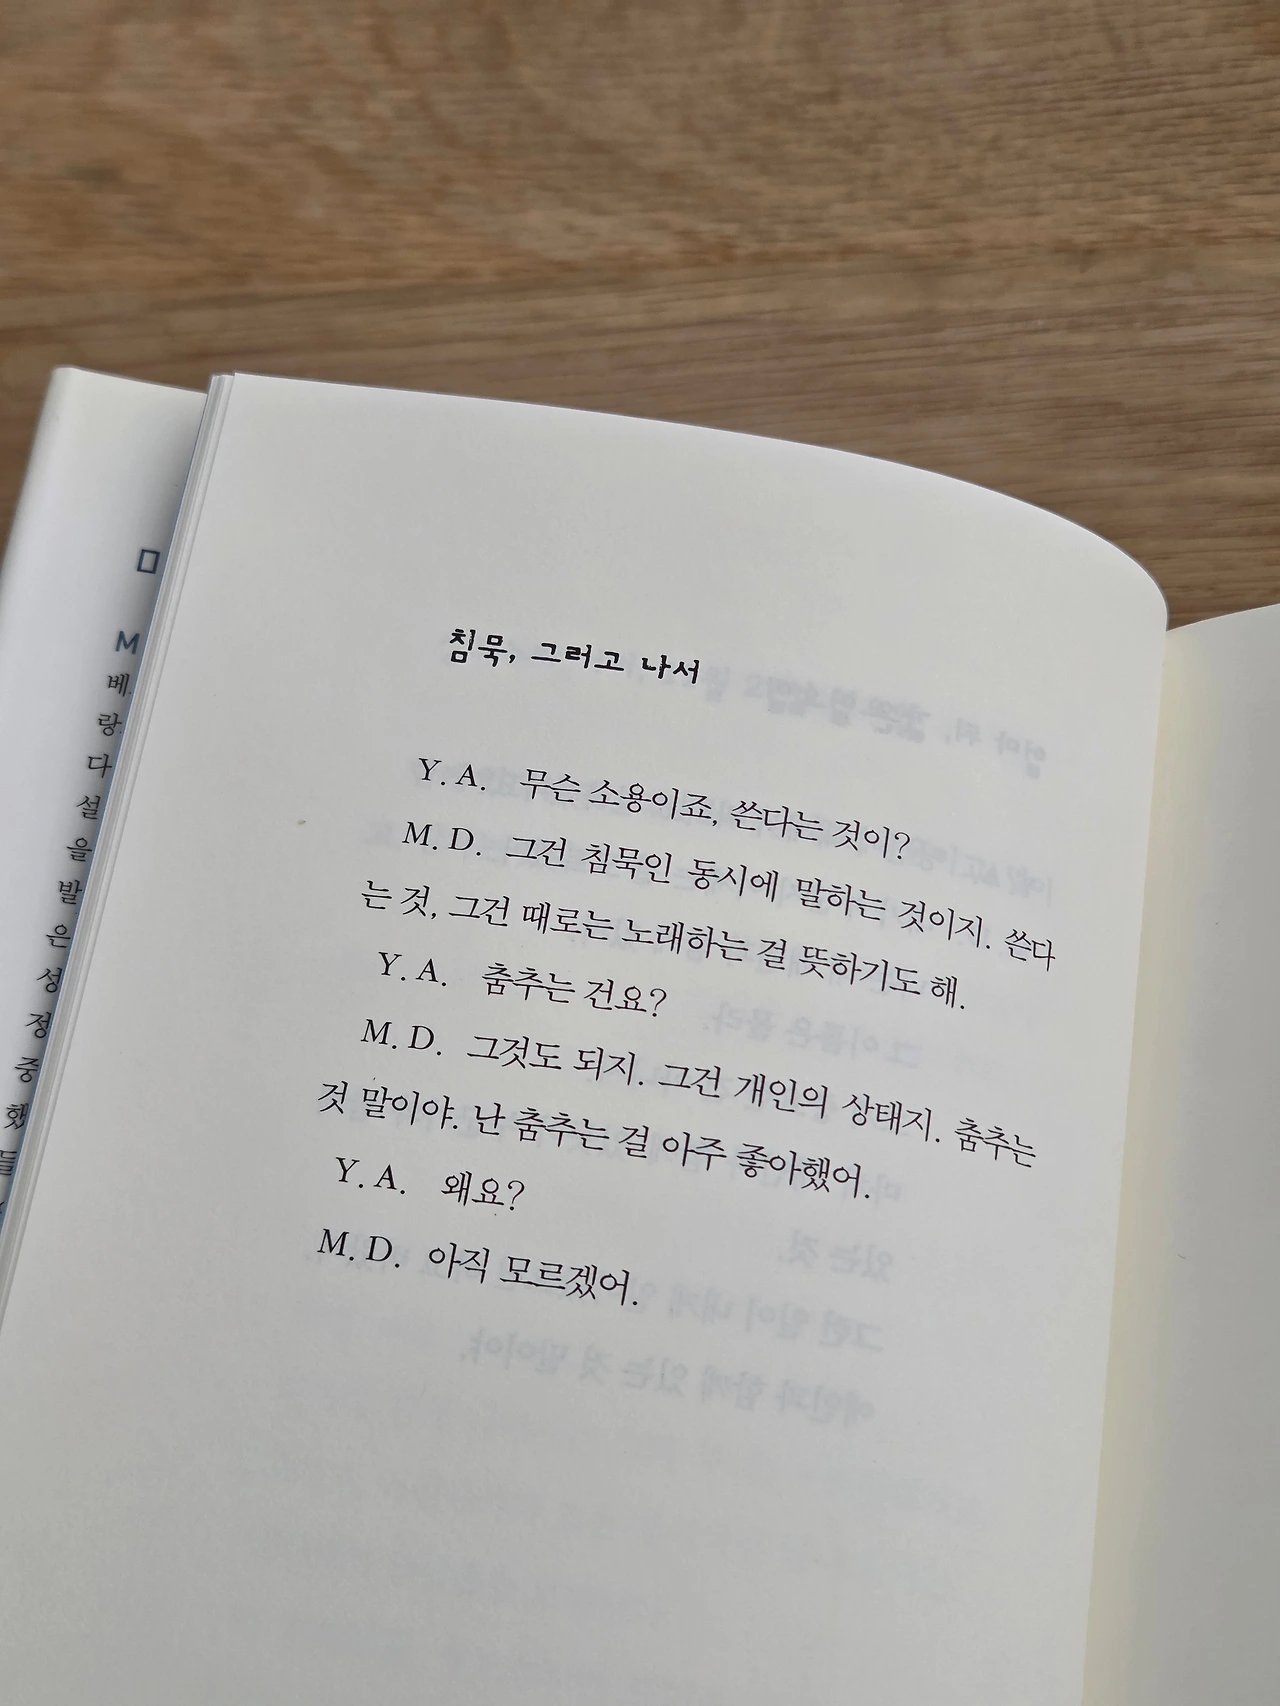 침묵, 그러고 나서
Y. A. 무슨 소용이죠, 쓴다는 것이?
M. D. 그건 침묵인 동시에 말하는 것이지. 쓴다
는 것, 그건 때로는 노래하는 걸 뜻하기도 해.
Y. A. 춤추는 건요?
M. D. 그것도 되지. 그건 개인의 상태지. 춤추는
것 말이야. 난 춤추는 걸 아주 좋아했어.
Y. A. 왜요?
M. D. 아직 모르겠어.
M
베
랑
다
설
을
발
은
성
정
중
했
들